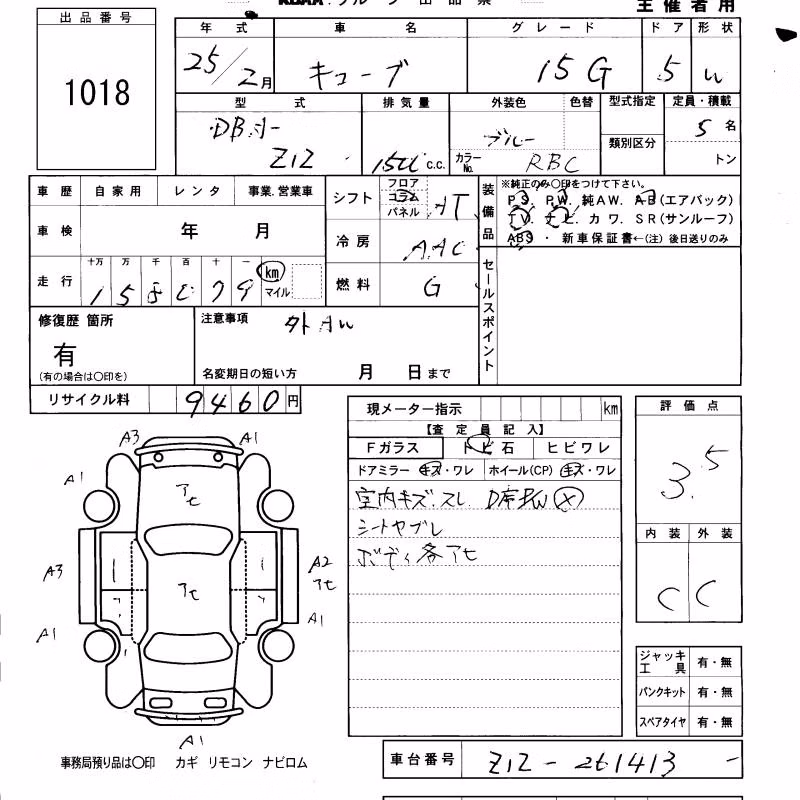 主催者用
出品番号
1018
年式 車名 グレード ドア 形状
25/2月 キューブ 15G 5 W
型式 排気量 外装色 色替 型式指定 定員・積載
DBA-
Z12 ブルー 類別区分 5名
c.c. カラーNo. RBC トン
車歴 自家用 レンタ 事業.営業車
シフト フロア コラム パネル AT
装備品 ※純正のみ○印をつけて下さい。
PS. PW. 純AW. AB(エアバック)
TV. ナビ. カワ. SR(サンルーフ)
ABS ・ 新車保証書←(注) 後日送りのみ
車検 年 月
冷房 AAC
走行 十万 万 千 百 十 一 km マイル
燃料 G
セールスポイント
修復歴 箇所
有
(有の場合は○印を)
注意事項
名変期日の短い方 月 日まで
リサイクル料 9460円
現メーター指示 km
【査定員記入】
Fガラス トビ石 ヒビワレ
ドアミラー キズ・ワレ ホイール(CP) キズ・ワレ
室内キズ.スレ
シートヤブレ
ボディ各アセ
評価点
3.5
内装 外装
C C
A3 A1
A1
アセ
A3
アセ
A2
アセ
A1
A1
A1
ジャッキ工具 有・無
パンクキット 有・無
スペアタイヤ 有・無
事務局預り品は○印 カギ リモコン ナビロム
車台番号 Z12-261413